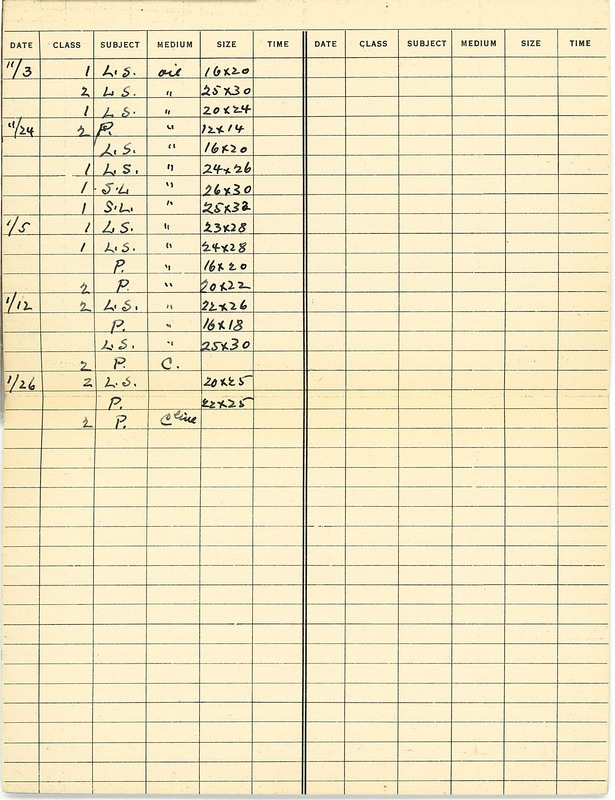 DATE CLASS SUBJECT MEDIUM SIZE TIME DATE CLASS SUBJECT MEDIUM SIZE TIME
11/3 1 L.S. oil 16x20
2 L.S. " 25x30
1 L.S. " 20x24
11/24 2 P. " 12x14
L.S. " 16x20
1 L.S. " 24x26
1 S.L. " 26x30
1 S.L. " 25x32
1/5 1 L.S. " 23x28
1 L.S. " 24x28
P. " 16x20
2 P. " 20x22
1/12 2 L.S. " 22x26
P. " 16x18
L.S. " 25x30
2 P. C.
1/26 2 L.S. 20x25
P. 22x25
2 P. C